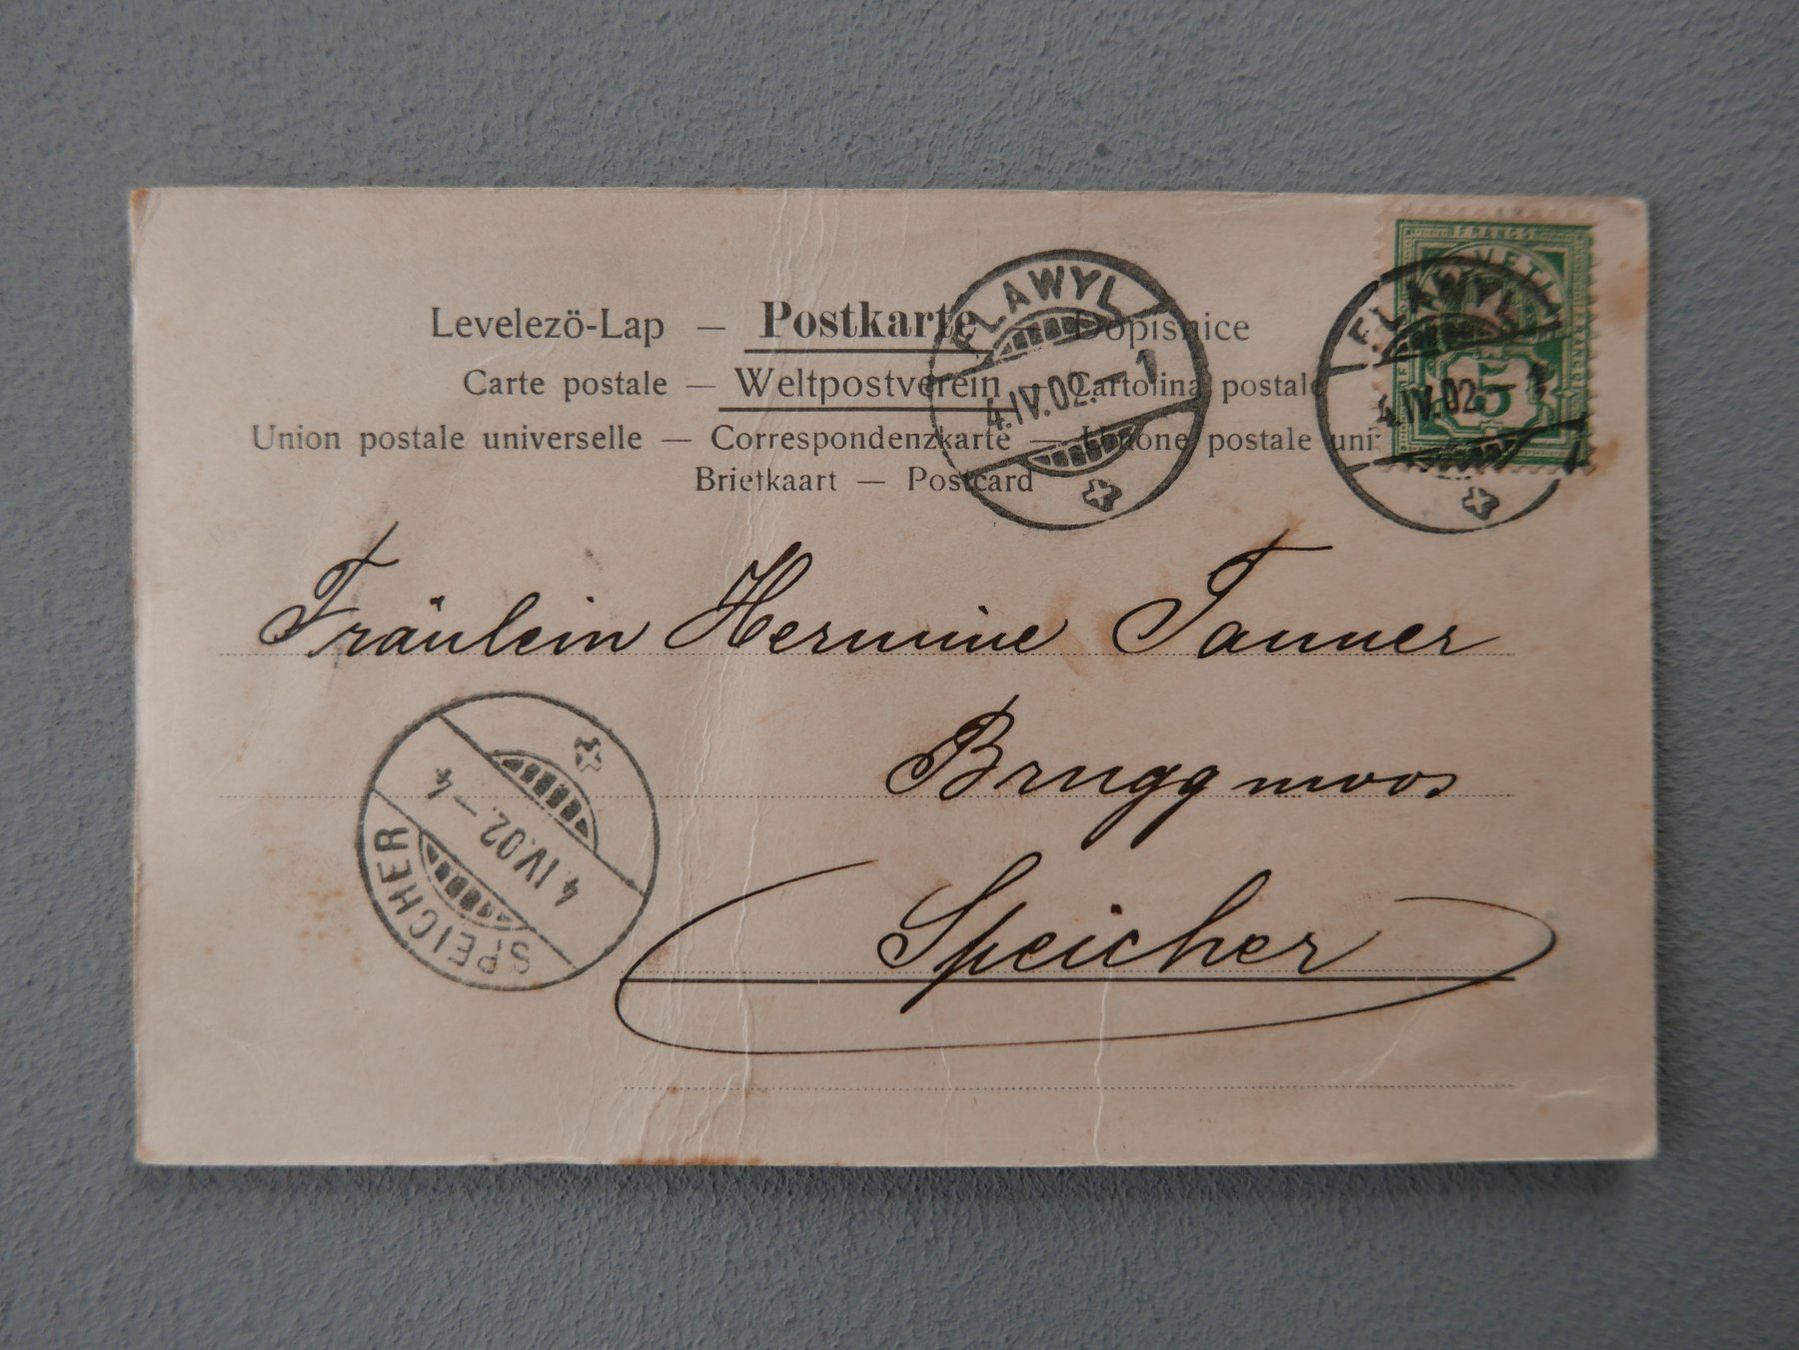 Levelezö-Lap — Postkarte Dopisnice
Carte postale — Weltpostverein Cartolina postale
Union postale universelle — Correspondenzkarte — Unione postale uni
Briefkaart — Postcard
FLAWYL
4.IV.02.–1
FRANCO
HELVETIA
5
FLAWYL
4.IV.02.–1
Fräulein Hermine Tanner
Bruggmoos
Speicher
SPEICHER
4.IV.02.–4